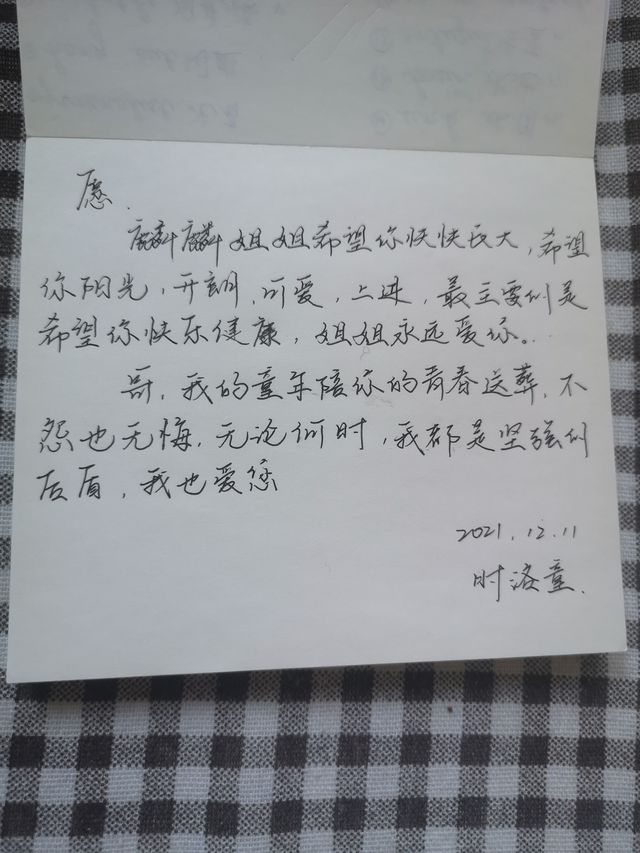 愿.
麟麟姐姐希望你快快长大,希望
你阳光,开朗,可爱,上进,最主要的是
希望你快乐健康,姐姐永远爱你。
哥,我的童年陪你的青春送葬,不
怨也无悔,无论何时,我都是坚强的
后盾,我也爱您
2021.12.11
时洛童.